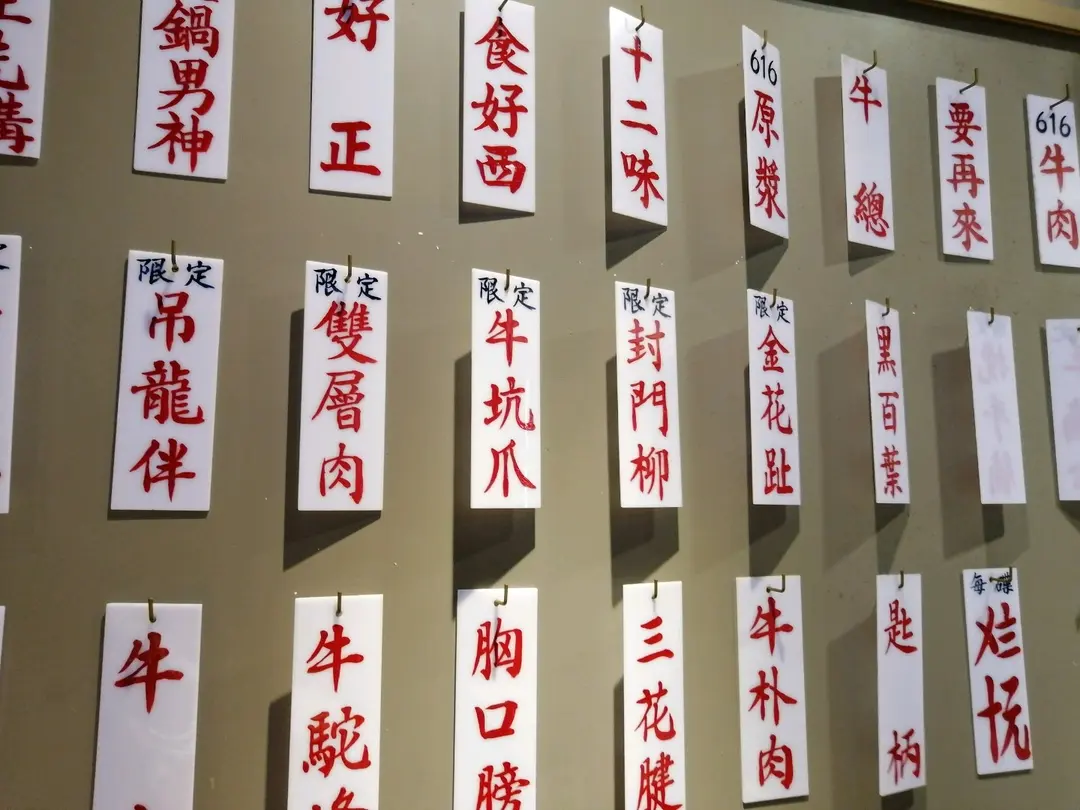 鍋男神
好正
食好西
十二味
616
原漿
牛總
要再來
616
牛肉
限定
吊龍伴
限定
雙層肉
限定
牛坑爪
限定
封門柳
限定
金花趾
黑百葉
牛
牛駝
胸口膀
三花腱
牛朴肉
匙柄
每碟
烂忨